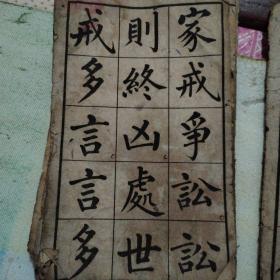 家戒爭訟訟
則終凶處世
戒多言言多